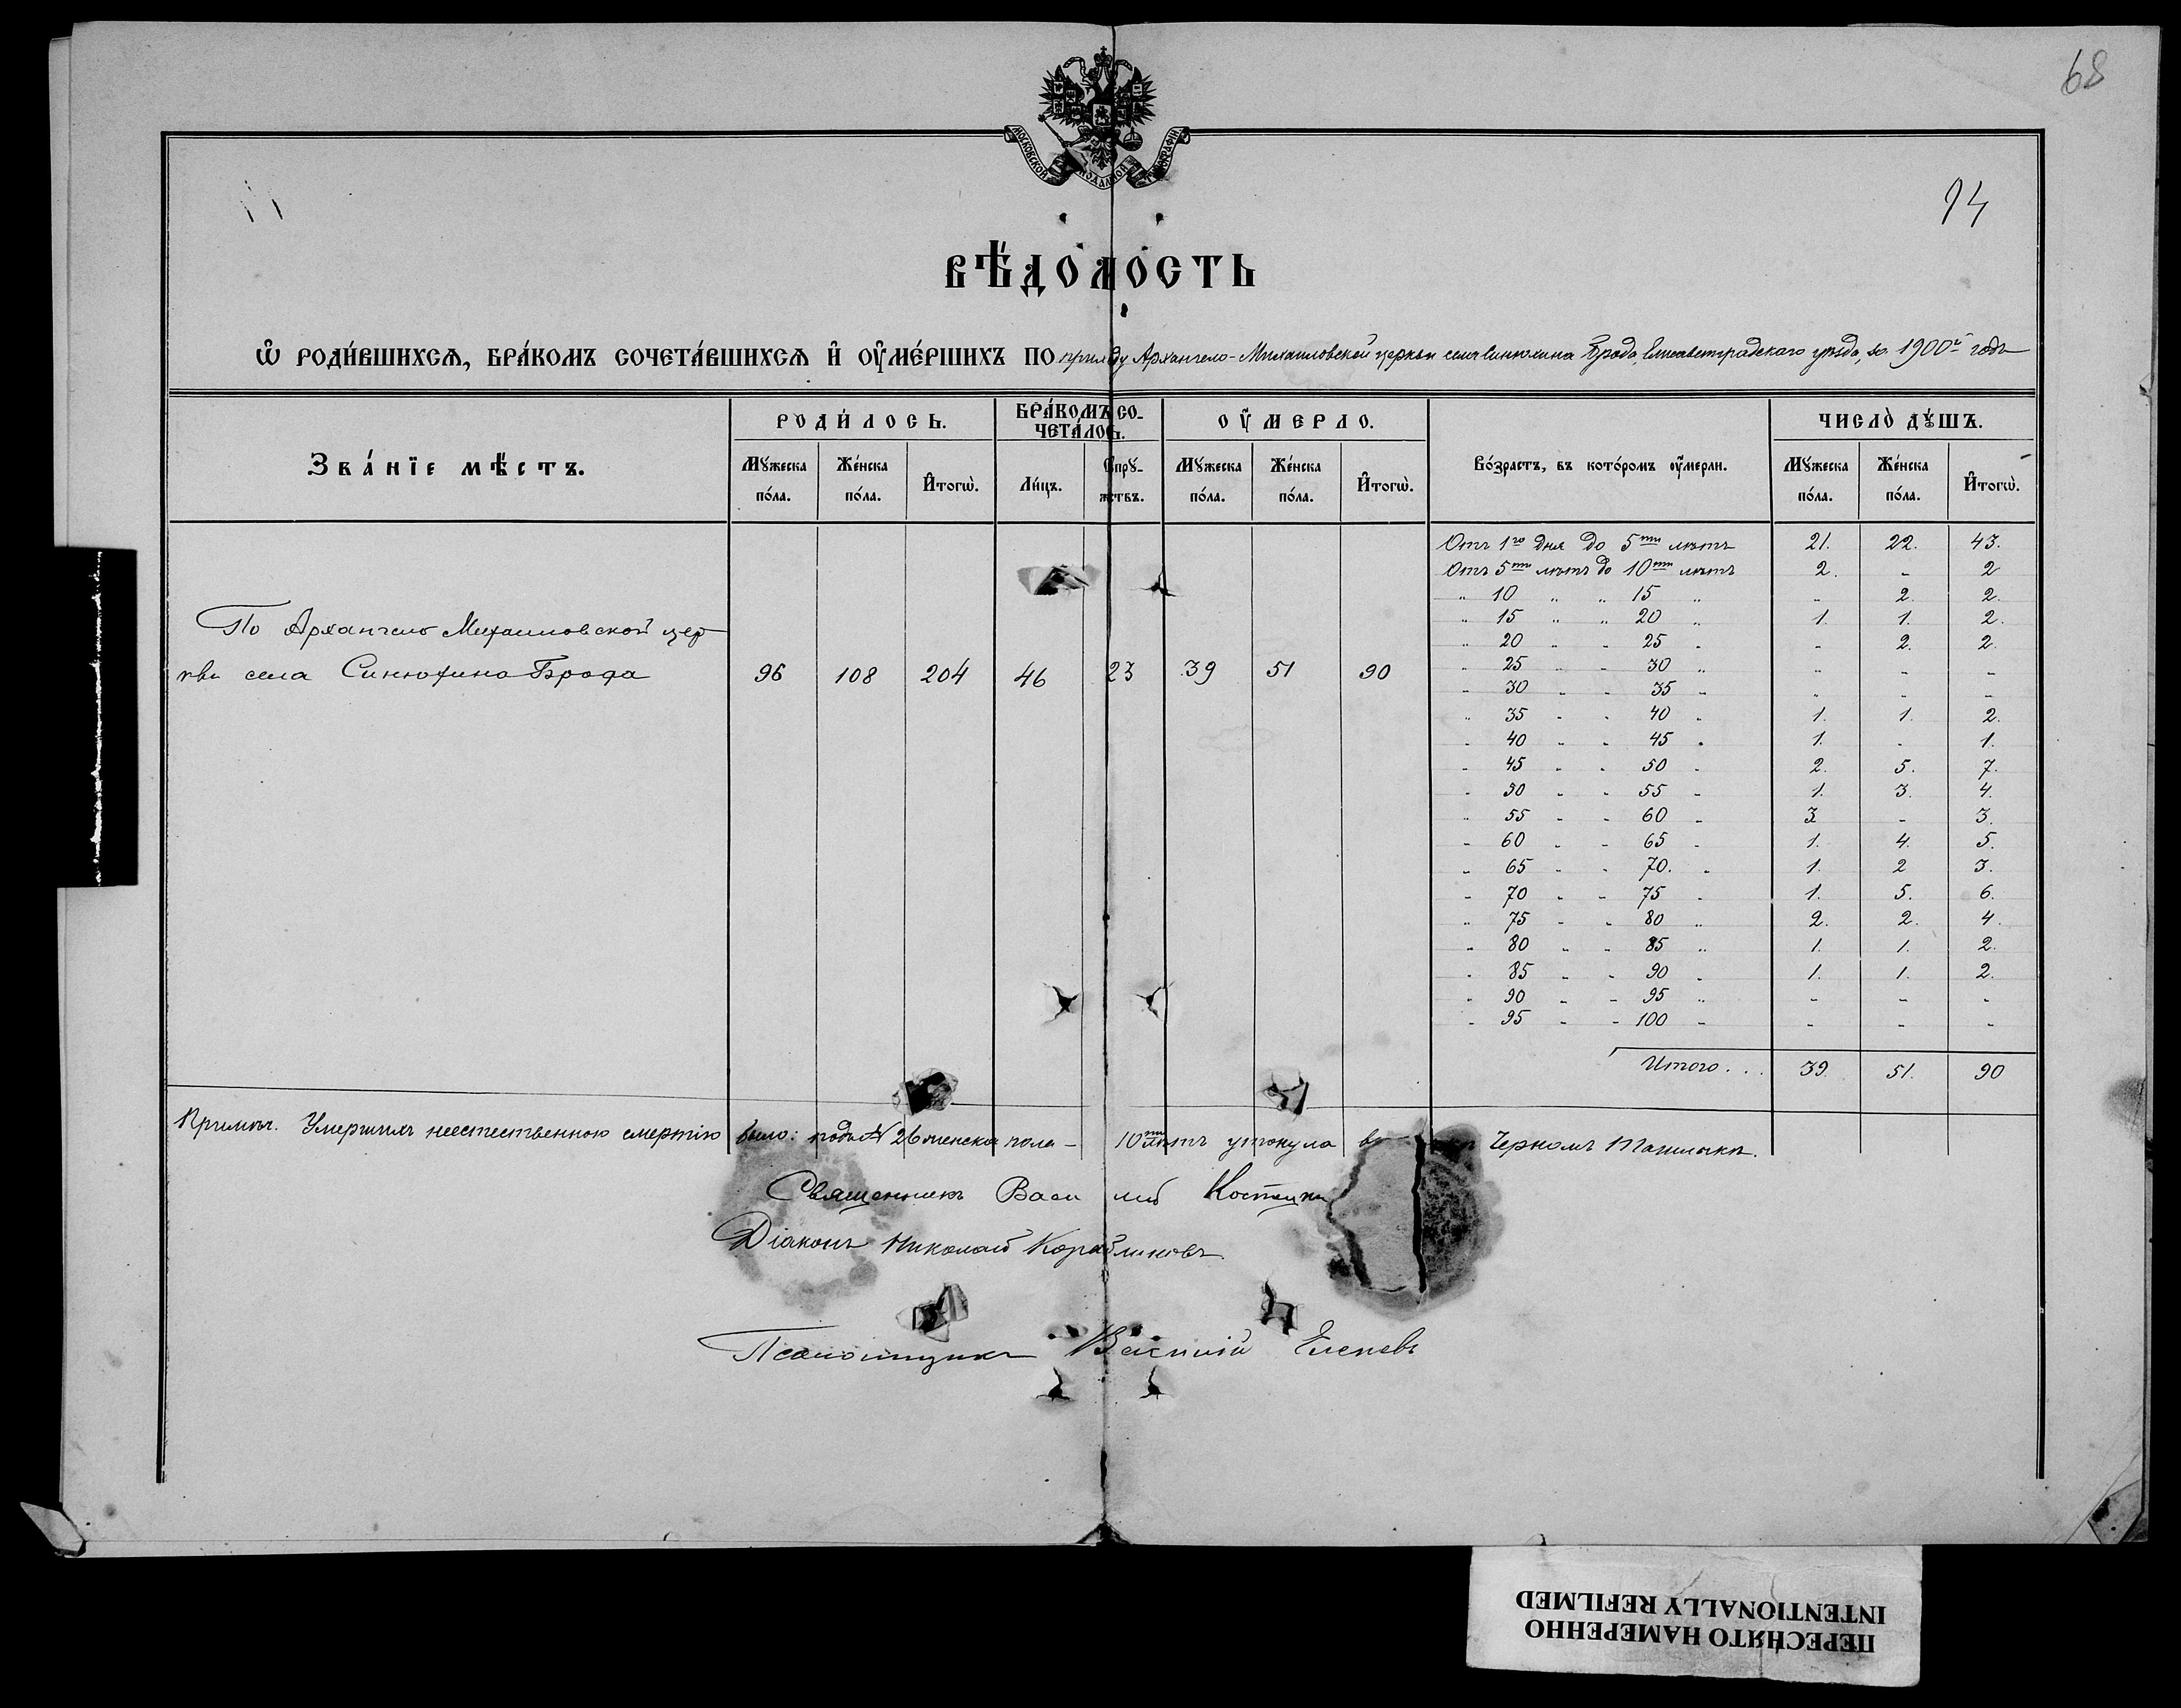 68
94
МОСКОВСКОЙ СИНОДАЛЬНОЙ ТИПОГРАФІИ
ВѢ́ДОМОСТЬ
Ѡ҆ РОДИ́ВШИХСѦ, БРА́КОМЪ СОЧЕТА́ВШИХСѦ И҆ ОУ҆МЕ́РШИХЪ ПО приходу Архангело-Михаиловской церкви села Синюхина Брода, Елисаветградскаго уѣзда, за 1900й годъ
Зва́нїе мѣ́стъ.
РОДИ́ЛОСЬ.
БРА́КОМЪ СО-
ЧЕТА́ЛОСЬ.
ОУ҆́МЕРЛО.
Во́зрастъ, въ кото́ромъ оу҆́мерли.
ЧИСЛО̀ ДꙊ́ШЪ.
Мꙋ́жеска по́ла. Же́нска по́ла. И҆тогѡ̀. Ли́цъ. Сꙋпрꙋ́-жствъ. Мꙋ́жеска по́ла. Же́нска по́ла. И҆тогѡ̀. Мꙋ́жеска по́ла. Же́нска по́ла. И҆тогѡ̀.
По Архангело Михаиловской цер-
кви села Синюхина Брода 96 108 204 46 23 39 51 90
Отъ 1го дня до 5ти лѣтъ 21. 22. 43.
Отъ 5ти лѣтъ до 10ти лѣтъ 2. - 2
" 10 " " 15 " " 2. 2.
" 15 " " 20 " 1. 1. 2.
" 20 " " 25 " - 2. 2.
" 25 " " 30 " " - -
" 30 " " 35 " " " -
" 35 " " 40 " 1. 1. 2.
" 40 " " 45 " 1. - 1.
" 45 " " 50 " 2. 5. 7.
" 50 " " 55 " 1. 3. 4.
" 55 " " 60 " 3. - 3.
" 60 " " 65 " 1. 4. 5.
" 65 " " 70. " 1. 2 3.
" 70 " " 75 " 1. 5. 6.
" 75 " " 80 " 2. 2. 4.
" 80 " " 85 " 1. 1. 2.
" 85 " " 90 " 1. 1. 2.
" 90 " " 95 " - - -
" 95 " " 100 " - - -
Итого... 39. 51. 90
Примѣч. Умершихъ неестественною смертію было: подъ № 26 женска пола - 10ти лѣтъ утонула Черномъ Ташлыкѣ.
Священникъ Василій
Діаконъ Николай Кораблиновъ
Псаломщикъ Василій Еленевъ
ПЕРЕСНЯТО НАМЕРЕННО
INTENTIONALLY REFILMED